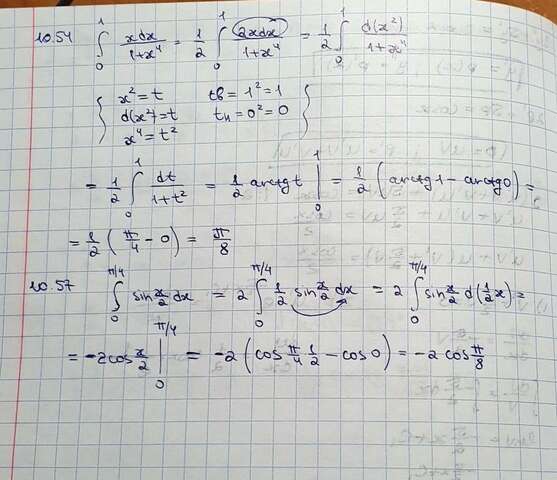 10.54 ∫₀¹ xdx/(1+x⁴) = 1/2 ∫₀¹ 2xdx/(1+x⁴) = 1/2 ∫₀¹ d(x²)/(1+x⁴)
{ x² = t tв = 1² = 1 }
d(x²) = t tн = 0² = 0
x⁴ = t²
= 1/2 ∫₀¹ dt/(1+t²) = 1/2 arctg t |₀¹ = 1/2 (arctg1 - arctg0) =
= 1/2 (π/4 - 0) = π/8
10.57 ∫₀^(π/4) sin x/2 dx = 2 ∫₀^(π/4) 1/2 sin x/2 dx = 2 ∫₀^(π/4) sin x/2 d(1/2 x) =
= -2cos x/2 |₀^(π/4) = -2 (cos π/4 1/2 - cos 0) = -2 cos π/8